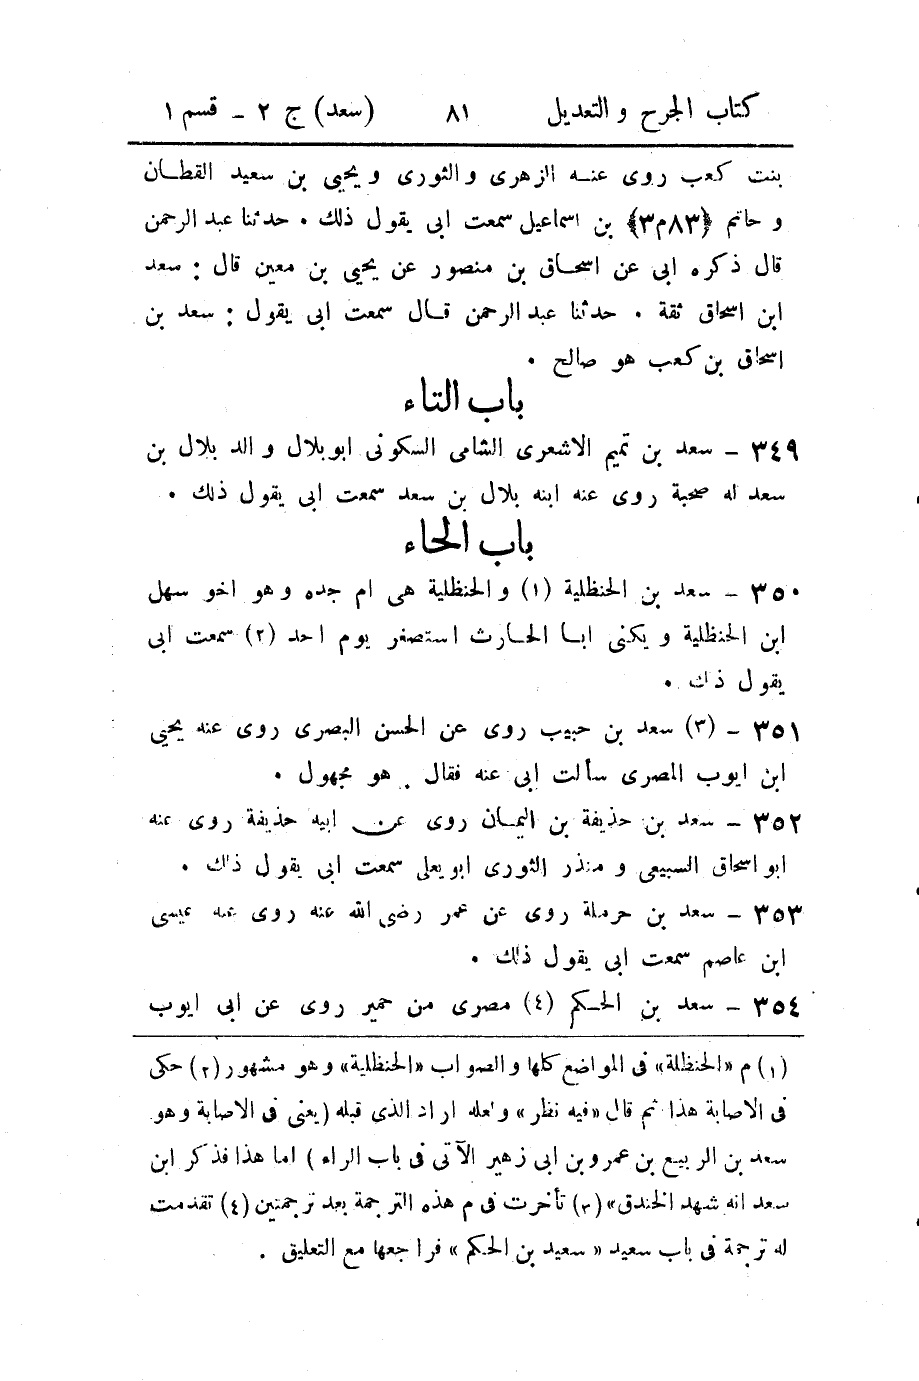 كتاب الجرح والتعديل ٨١ (سعد) ج ٢ - قسم ١
بنت كعب روى عنه الزهرى والثورى ويحيى بن سعيد القطان
و حاتم ﴿٨٣م٣﴾ بن اسماعيل سمعت ابى يقول ذلك . حدثنا عبد الرحمن
قال ذكره ابى عن اسحاق بن منصور عن يحيى بن معين قال : سعد
ابن اسحاق ثقة . حدثنا عبد الرحمن قال سمعت ابى يقول : سعد بن
اسحاق بن كعب هو صالح .
باب التاء
٣٤٩ - سعد بن تميم الاشعرى الشامى السكونى ابو بلال والد بلال بن
سعد له صحبة روى عنه ابنه بلال بن سعد سمعت ابى يقول ذلك .
باب الحاء
٣٥٠ - سعد بن الحنظلية (١) والحنظلية هى ام جده وهو اخو سهل
ابن الحنظلية و يكنى ابا الحارث استصغر يوم احد (٢) سمعت ابى
يقول ذلك .
٣٥١ - (٣) سعد بن حبيب روى عن الحسن البصرى روى عنه يحيى
ابن ايوب المصرى سألت ابى عنه فقال . هو مجهول .
٣٥٢ - سعد بن حذيفة بن اليمان روى عن ابيه حذيفة روى عنه
ابو اسحاق السبيعى و منذر الثورى ابو يعلى سمعت ابى يقول ذلك .
٣٥٣ - سعد بن حرملة روى عن عمر رضى الله عنه روى عنه عيسى
ابن عاصم سمعت ابى يقول ذلك .
٣٥٤ - سعد بن الحكم (٤) مصرى من حمير روى عن ابى ايوب
(١) م «الحنظلة» فى المواضع كلها والصواب «الحنظلية» وهو مشهور (٢) حكى
فى الاصابة هذا ثم قال «فيه نظر» ولعله اراد الذى قبله (يعنى فى الاصابة وهو
سعد بن الربيع بن عمرو بن ابى زهير الآتى فى باب الراء ) اما هذا فذكر ابن
سعد انه شهد الخندق» (٣) تأخرت فى م هذه الترجمة بعد ترجمتين (٤) تقدمت
له ترجمة فى باب سعيد «سعيد بن الحكم» فراجعها مع التعليق .